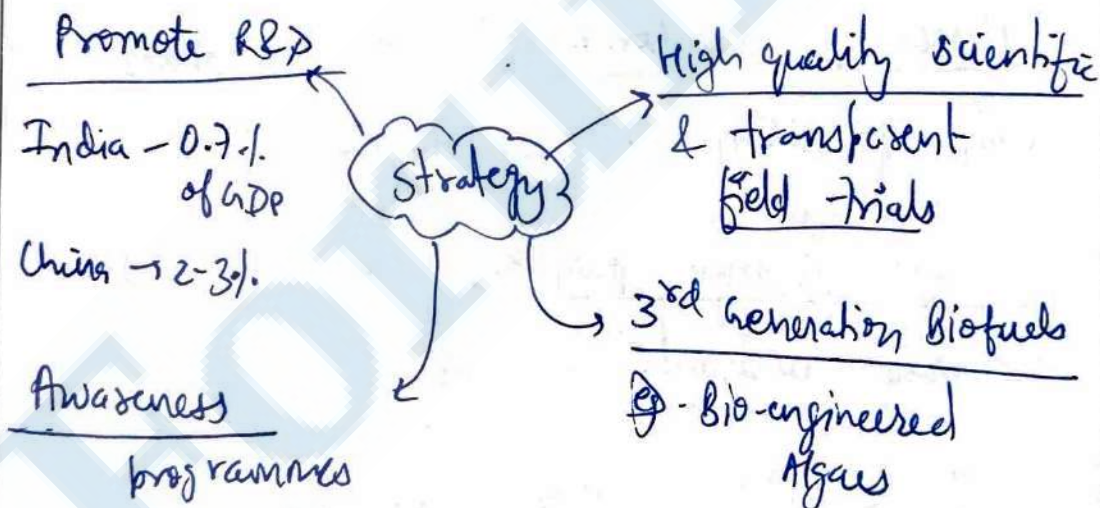 Promote R&D
India - 0.7%
of GDP
China → 2-3%
Strategy
High quality scientific
& transparent
field trials
3rd Generation Biofuels
eg - Bio-engineered
Algaes
Awareness
programmes